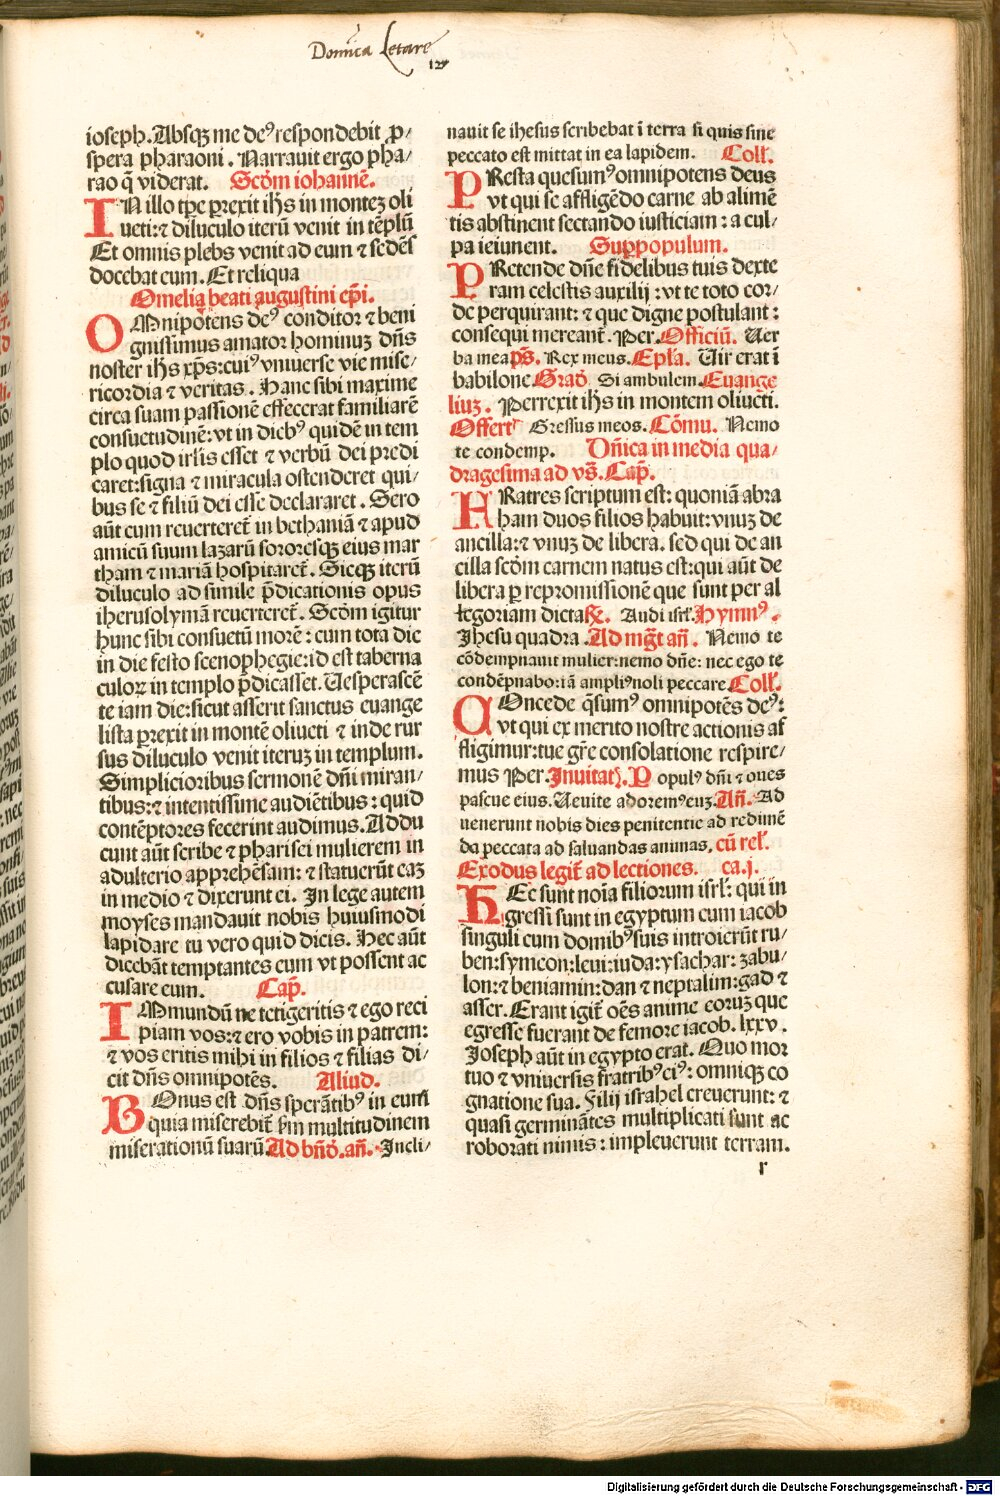 Domīca Letare
127
ioseph. Absqꝫ me deꝰ respondebit ꝓ/
spera pharaoni. Narrauit ergo pha/
rao q̄ viderat. Scd̄m iohannē.
IN illo tp̄e ꝑrexit ih̄s in monteꝫ oli
ueti: ⁊ diluculo iterū venit in tēplū
Et omnis plebs venit ad eum ⁊ sedēs
docebat eum. Et reliqua
Omelia beati augustini ep̄i.
OMnipotens deꝰ conditor ⁊ beni
gnissimus amator hominuꝫ dn̄s
noster ih̄s xp̄s: cuiꝰ vniuerse vie mise/
ricordia ⁊ veritas. Hanc sibi maxime
circa suam passionē effecerat familiarē
consuetudinē: vt in diebꝰ quidē in tem
plo quod irl̄is esset ⁊ verbū dei predi
caret: signa ⁊ miracula ostenderet qui/
bus se ⁊ filiū dei esse declararet. Sero
aūt cum reuerteret̄ in bethaniā ⁊ apud
amicū suum lazarū sororesqꝫ eius mar
tham ⁊ mariā hospitaret̄. Sicqꝫ iterū
diluculo ad simile p̄dicationis opus
iherusolymā reuerteret̄. Scd̄m igitur
hunc sibi consuetū morē: cum tota die
in die festo scenophegie: id est taberna
culoꝝ in templo p̄dicasset. Uesperascē
te iam die: sicut asserit sanctus euange
lista ꝑrexit in montē oliueti ⁊ inde rur
sus diluculo venit iteruꝫ in templum.
Simplicioribus sermonē dn̄i miran/
tibus: ⁊ intentissime audiētibus: quid
contēptores fecerint audimus. Addu
cunt aūt scribe ⁊ pharisei mulierem in
adulterio apprehēsam: ⁊ statuerūt eaꝫ
in medio ⁊ dixerunt ei. In lege autem
moyses mandauit nobis huiusmodi
lapidare tu vero quid dicis. Hec aūt
dicebāt temptantes eum vt possent ac
cusare eum. Cap̄.
IMmundū ne tetigeritis ⁊ ego reci
piam vos: ⁊ ero vobis in patrem:
⁊ vos eritis mihi in filios ⁊ filias di/
cit dn̄s omnipotēs. Aliud.
BOnus est dn̄s sperātibꝰ in eum
quia miserebit̄ sm̄ multitudinem
miserationū suarū. Ad bn̄d. an̄. Incli/
nauit se ihesus scribebat ī terra si quis sine
peccato est mittat in ea lapidem. Coll̄.
PResta quesumꝰ omnipotens deus
vt qui se affligēdo carne ab alimē
tis abstinent sectando iusticiam: a cul/
pa ieiunent. Sup populum.
PRetende dn̄e fidelibus tuis dexte
ram celestis auxilij: vt te toto cor/
de perquirant: ⁊ que digne postulant:
consequi mereant̄. Per. Officiū. Uer
ba mea ps̄. Rex meus. Epl̄a. Uir erat ī
babilone Grad̄ Si ambulem. Euange
liuꝫ. Perrexit ih̄s in montem oliueti.
Offert̄ Gressus meos. Cōmu. Nemo
te condemp. Dn̄ica in media qua/
dragesima ad vs̄. Cap̄.
FRatres scriptum est: quoniā abra
ham duos filios habuit: vnuꝫ de
ancilla: ⁊ vnuꝫ de libera. sed qui de an
cilla scd̄m carnem natus est: qui aūt de
libera ꝑ repromissionē que sunt per al
legoriam dicta ℞. Audi isrl̄. Hymnꝰ.
Ihesu quadra. Ad mḡt an̄. Nemo te
cōdempnauit mulier: nemo dn̄e: nec ego te
condēpnabo: iā ampliꝰ noli peccare Coll̄.
COncede q̄sumꝰ omnipotēs deꝰ:
vt qui ex merito nostre actionis af
fligimur: tue gr̄e consolatione respire/
mus Per. Inuitat̄. Populꝰ dn̄i ⁊ oues
pascue eius. Uenite adoremꝰ euꝫ. An̄. Ad
uenerunt nobis dies penitentie ad redimē
da peccata ad saluandas animas, cū rel̄.
Exodus legit̄ ad lectiones. ca.j.
HEc sunt noīa filiorum isrl̄: qui in
gressi sunt in egyptum cum iacob
singuli cum domibꝰ suis introierūt ru/
ben: symeon: leui: iuda: ysachar: zabu/
lon: ⁊ beniamin: dan ⁊ neptalim: gad ⁊
asser. Erant igit̄ oēs anime eoruꝫ que
egresse fuerant de femore iacob. lxxv.
Ioseph aūt in egypto erat. Quo mor
tuo ⁊ vniuersis fratribꝰ eiꝰ: omniqꝫ co
gnatione sua. Filij israhel creuerunt: ⁊
quasi germinātes multiplicati sunt ac
roborati nimis: impleuerunt terram.
r
Digitalisierung gefördert durch die Deutsche Forschungsgemeinschaft - DFG